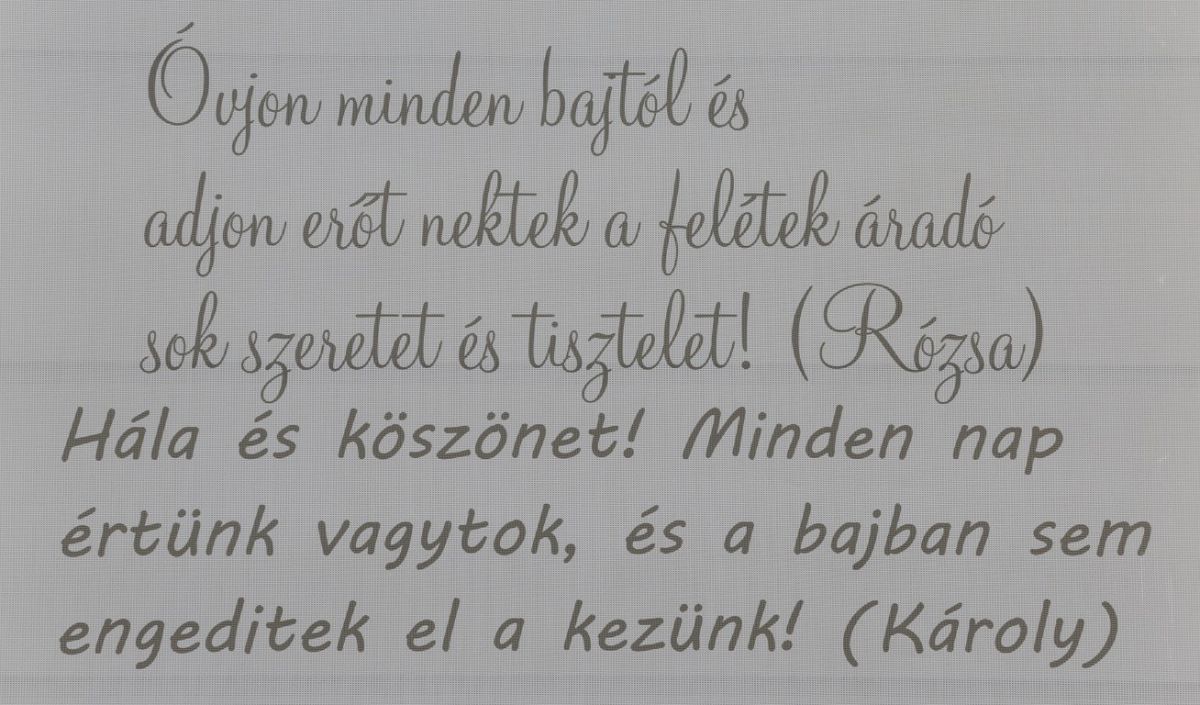 Óvjon minden bajtól és
adjon erőt nektek a felétek áradó
sok szeretet és tisztelet! (Rózsa)
Hála és köszönet! Minden nap
értünk vagytok, és a bajban sem
engeditek el a kezünk! (Károly)